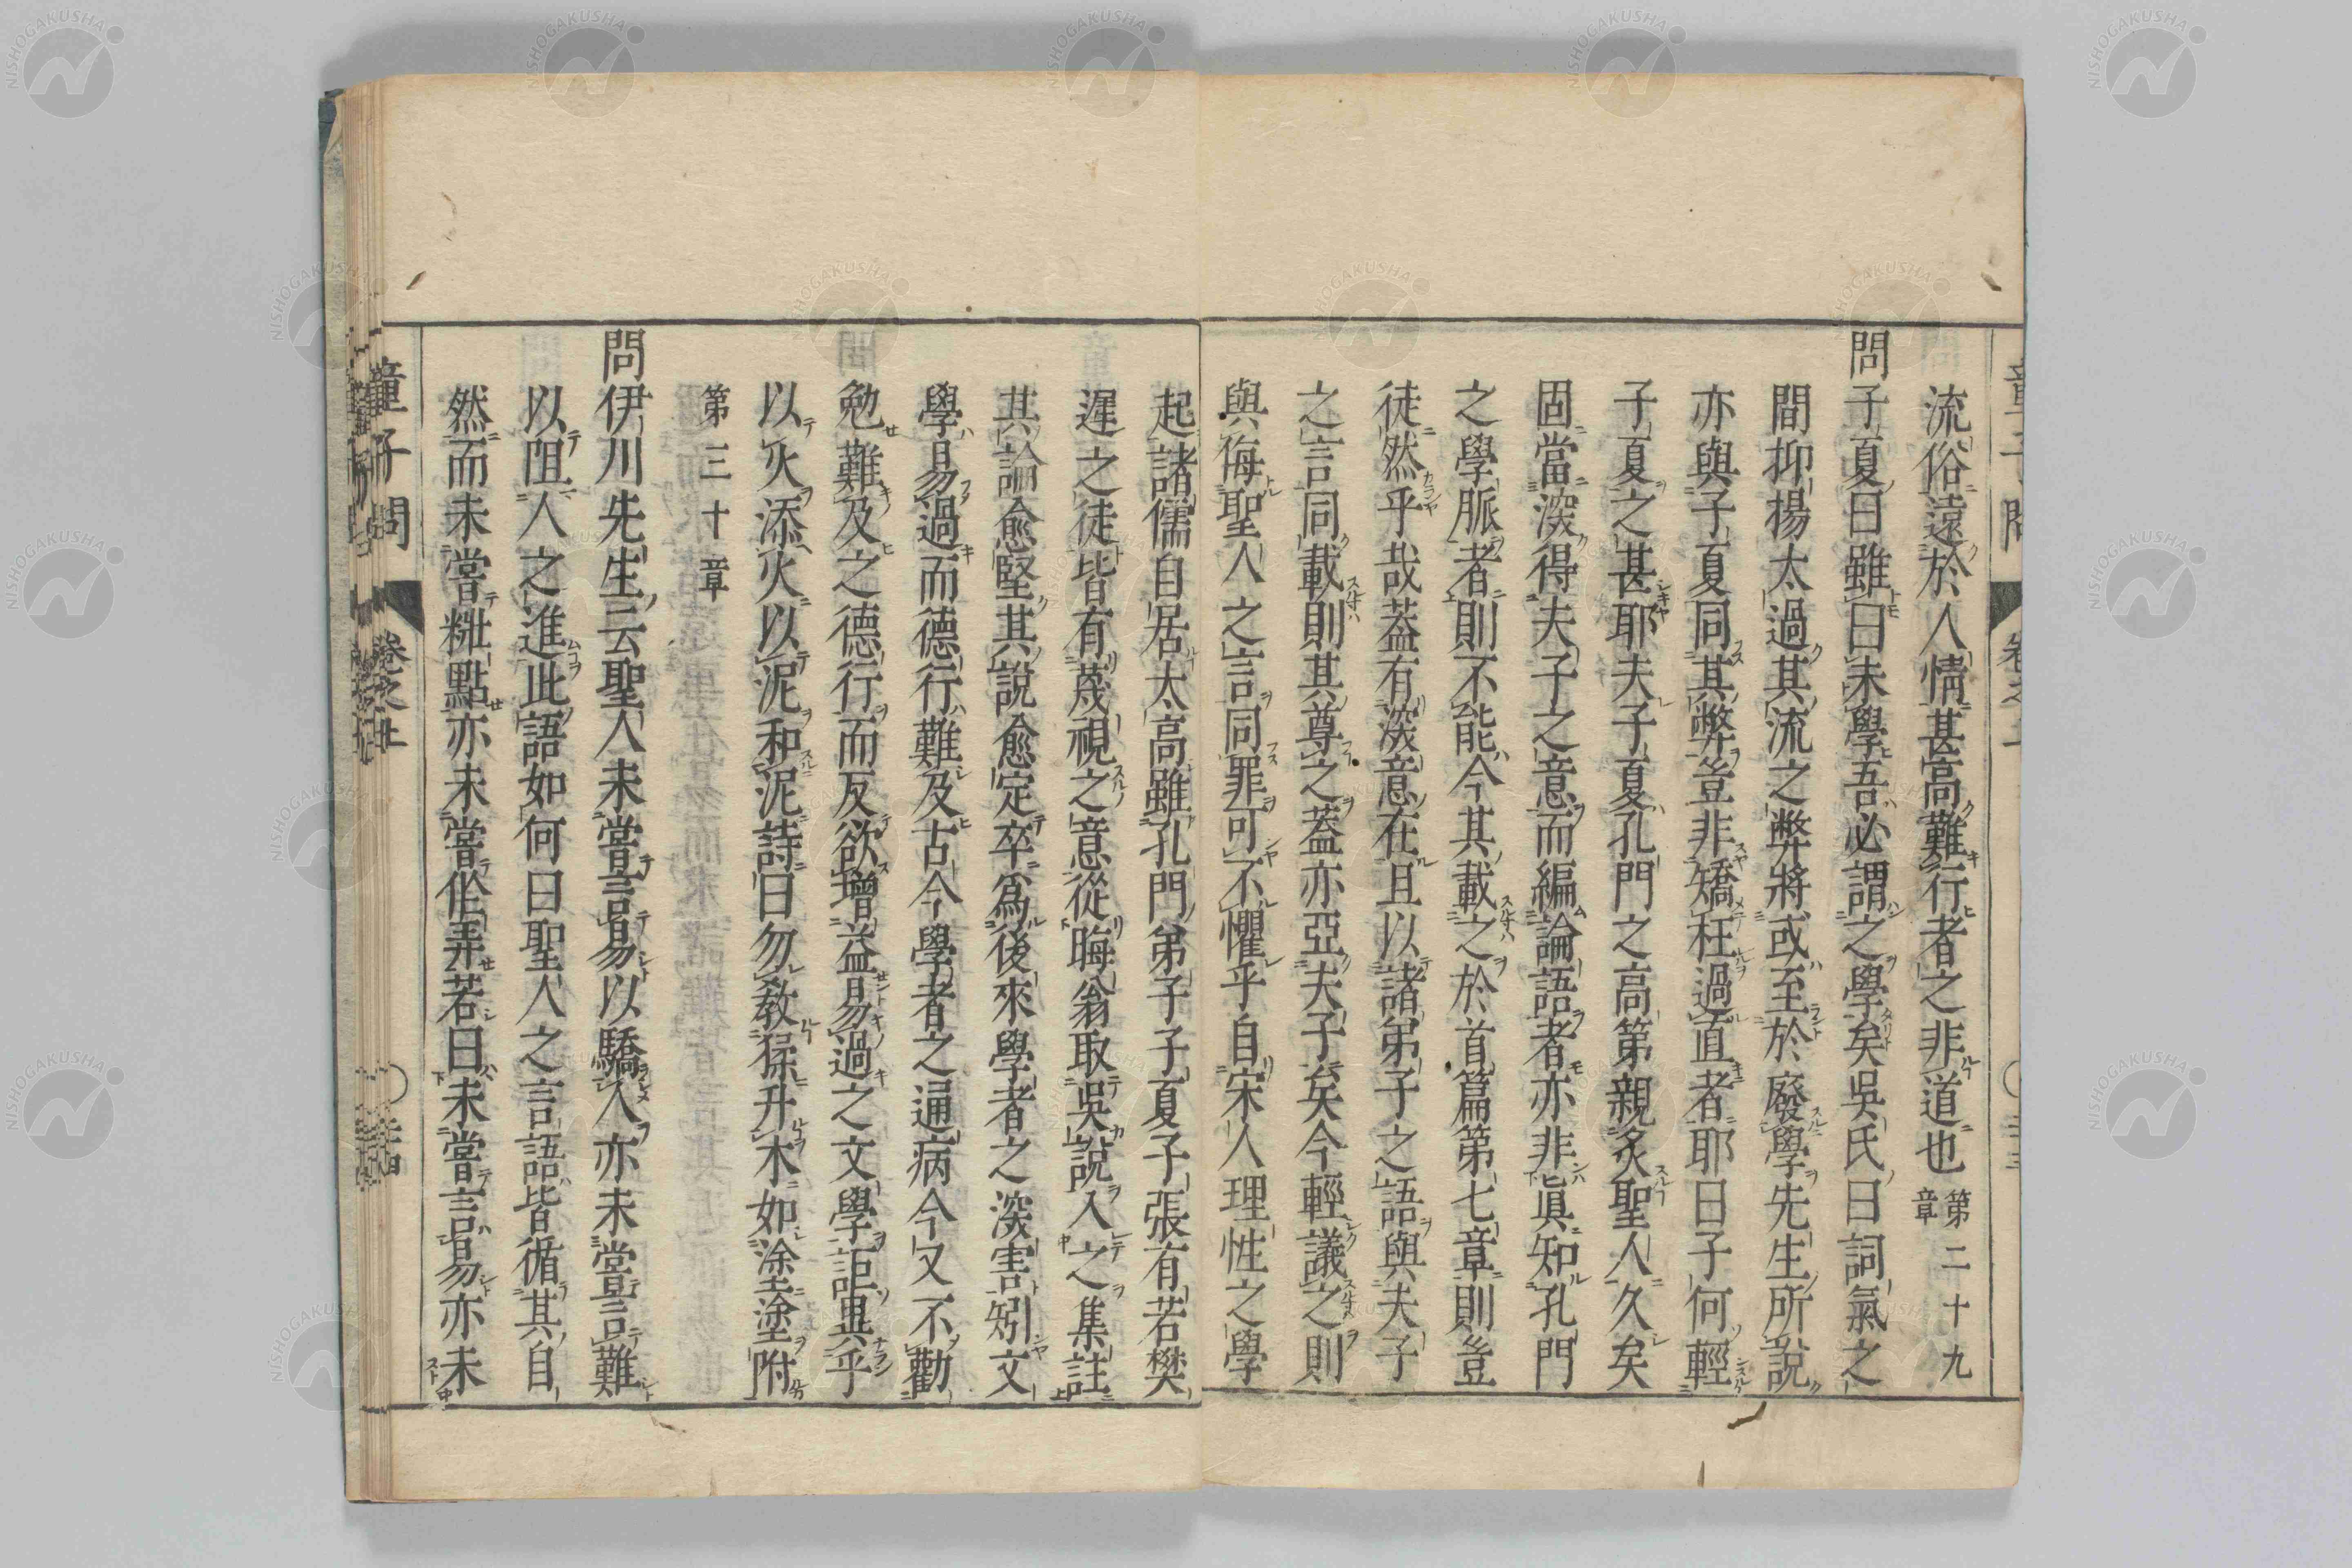 流俗遠於人情甚高難行者之非道也 第二十九章
問子夏曰雖曰未學吾必謂之學矣吳氏曰詞氣之
間抑揚太過其流之弊將或至於廢學先生所說
亦與子夏同其弊豈非矯枉過直者耶曰子何輕
子夏之甚耶夫子夏孔門之高第親炙聖人久矣
固當深得夫子之意而編論語者亦非眞知孔門
之學脈者則不能今其載之於首篇第七章則豈
徒然乎哉蓋有深意在且以諸弟子之語與夫子
之言同載則其尊之蓋亦亞夫子矣今輕議之則
與侮聖人之言同罪可不懼乎自宋人理性之學
起諸儒自居太高雖孔門弟子子夏子張有若樊
遲之徒皆有蔑視之意從晦翁取吳說入之集註
其論愈堅其說愈定卒爲後來學者之深害矧文
學易過而德行難及古今學者之通病今又不勸
勉難及之德行而反欲增益易過之文學詎異乎
以火添火以泥和泥詩曰勿敎猱升木如塗塗附
第三十章
問伊川先生云聖人未嘗言易以驕人亦未嘗言難
以阻人之進此語如何曰聖人之言語皆循其自
然而未嘗粧點亦未嘗作弄若曰未嘗言易亦未
童子問 卷之上